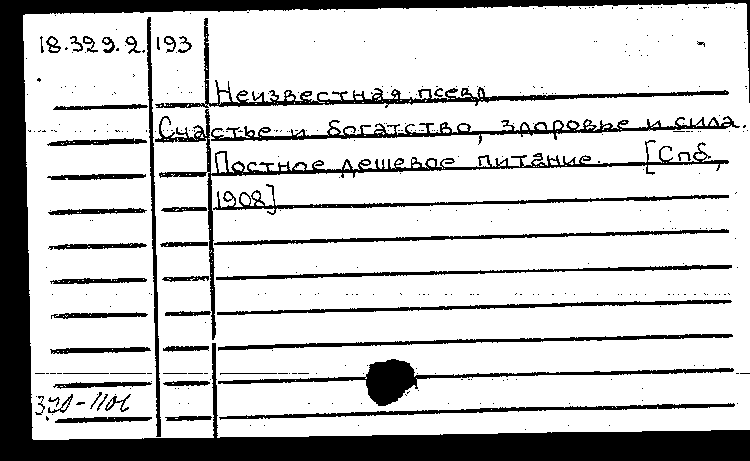 18.329.2. 193
Неизвестная, псевд
Счастье и богатство, здоровье и сила.
Постное дешевое питание. [Спб,
1908]